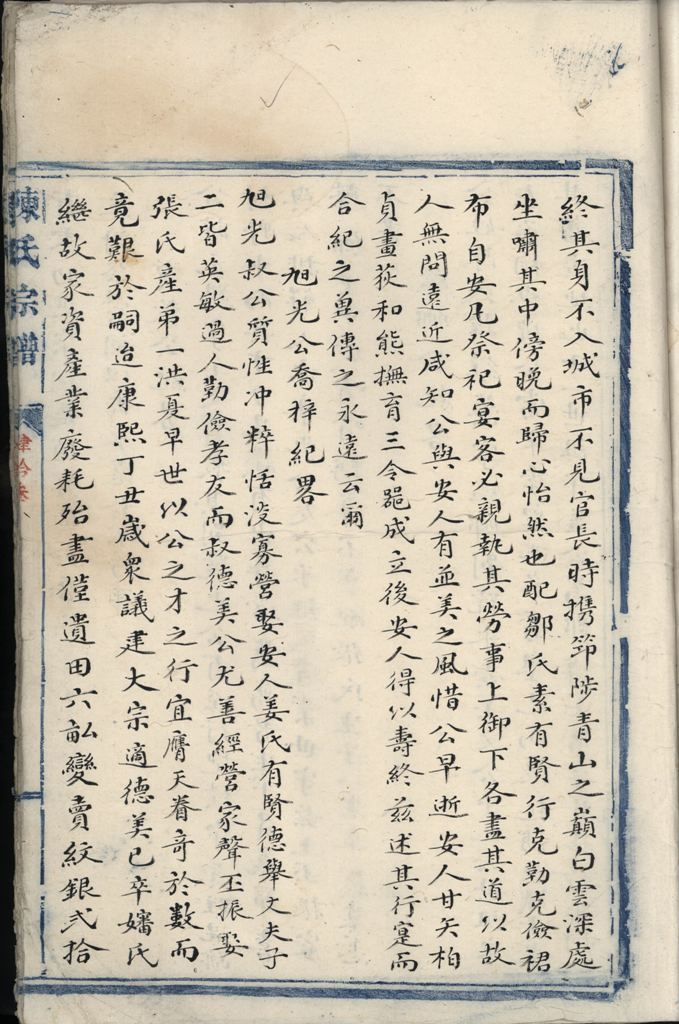 終其身不入城市不見官長時携筇陟青山之巔白雲深處
坐嘯其中傍晚而歸心怡然也配鄒氏素有賢行克勤克儉裙
布自安凡祭祀宴客必親執其勞事上御下各盡其道以故
人無問遠近咸知公與安人有並美之風惜公早逝安人甘矢柏
貞畫荻和熊撫育三令嗣成立後安人得以壽終兹述其行寔而
合紀之兾傳之永遠云爾
旭光公喬梓紀畧
旭光叔公質性冲粹恬淡寡營娶安人姜氏有賢德舉丈夫子
二皆英敏過人勤儉孝友而叔德美公尤善經營家聲丕振娶
張氏產弟一洪夏早世以公之才之行宜膺天眷奇於數而
竟艱於嗣迨康熙丁丑歲衆議建大宗適德美已卒嬸氏
繼故家資產業廢耗殆盡僅遺田六畝變賣紋銀弍拾
陳氏宗譜